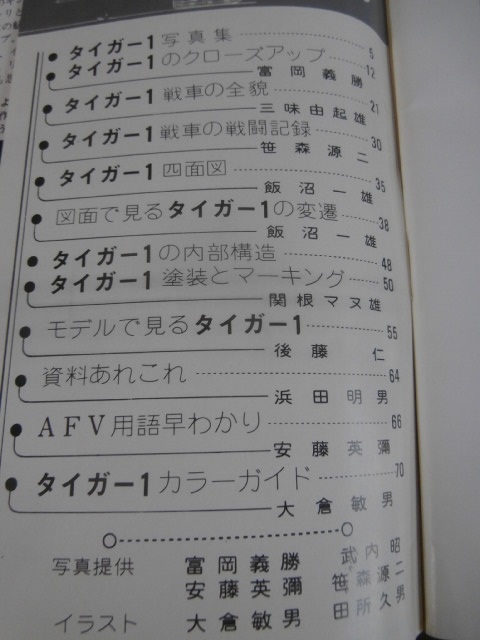 タイガー1 写真集 5
タイガー1 のクローズアップ 12
富岡義勝
タイガー1 戦車の全貌 21
三味由起雄
タイガー1 戦車の戦闘記録 30
笹森源二
タイガー1 四面図 35
飯沼一雄
図面で見るタイガー1の変遷 38
飯沼一雄
タイガー1 の内部構造 48
タイガー1 塗装とマーキング 50
関根マヌ雄
モデルで見るタイガー1 55
後藤 仁
資料あれこれ 64
浜田明男
AFV用語早わかり 66
安藤英彌
タイガー1 カラーガイド 70
大倉敏男
写真提供 富岡義勝 武内昭
安藤英彌 笹森源二
イラスト 大倉敏男 田所久男